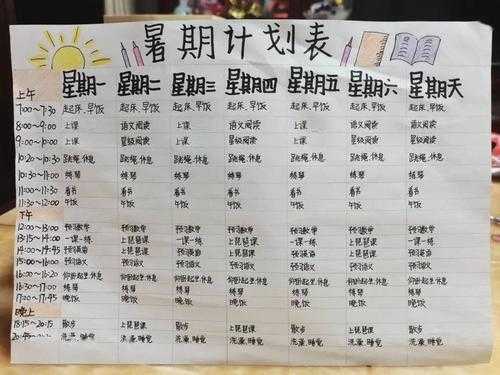 暑期计划表
上午 星期一 星期二 星期三 星期四 星期五 星期六 星期天
7:00~7:30 起床、早饭 起床、早饭 起床、早饭 起床、早饭 起床、早饭 起床、早饭 起床、早饭
8:00~9:00 上课 语文阅读 上课 语文阅读 上课 语文阅读 语文阅读
9:00~10:00 上课 星级阅读 上课 星级阅读 上课 星级阅读 星级阅读
10:20~10:30 跳绳、休息 跳绳、休息 跳绳、休息 跳绳、休息 跳绳、休息 跳绳、休息 跳绳、休息
10:30~11:00 练琴 练琴 练琴 练琴 练琴 练琴 练琴
11:00~11:30 看书 看书 看书 看书 看书 看书 看书
11:30~12:00 午饭 午饭 午饭 午饭 午饭 午饭 午饭
下午
12:00~13:00 预习数学 预习数学 预习数学 预习数学 预习数学 预习数学 预习数学
13:15~14:00 一课一练 上琵琶课 一课一练 上琵琶课 一课一练 上琵琶课 上琵琶课
14:00~14:45 预习英语 上琵琶课 预习英语 上琵琶课 预习英语 上琵琶课 上琵琶课
15:00~16:00 预习语文 预习语文 预习语文 预习语文 预习语文 预习语文 预习语文
16:00~16:20 仰卧起坐、休息 仰卧起坐、休息 仰卧起坐、休息 仰卧起坐、休息 仰卧起坐、休息 仰卧起坐、休息 仰卧起坐、休息
16:30~17:00 练琴 练琴 练琴 练琴 练琴 练琴 练琴
17:00~17:45 晚饭 晚饭 晚饭 晚饭 晚饭 晚饭 晚饭
晚上
18:15~20:15 散步 上琵琶课 散步 上琵琶课 散步 上琵琶课 上琵琶课
洗澡、睡觉 洗澡、睡觉 洗澡、睡觉 洗澡、睡觉 洗澡、睡觉 洗澡、睡觉 洗澡、睡觉